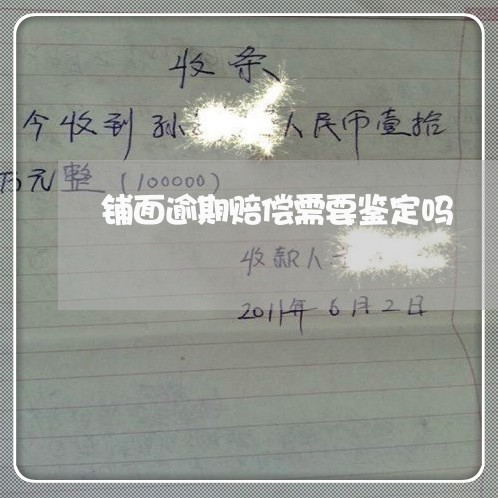 收条
今收到孙 人民币壹拾
万元整(100000)
铺面逾期赔偿需要鉴定吗
收款人
2011年6月2日